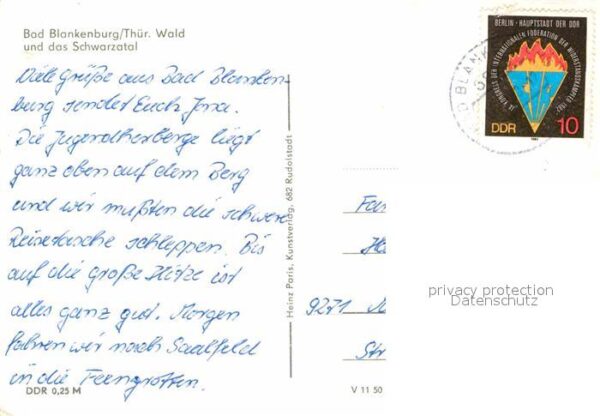 Bad Blankenburg/Thür. Wald
und das Schwarzatal
Viele Grüße aus Bad Blanken-
burg sendet Euch Jana.
Die Jugendherberge liegt
ganz oben auf dem Berg
und wir mußten die schwere
Reisetasche schleppen. Bis
auf die große Hitze ist
alles ganz gut. Morgen
fahren wir nach Saalfeld
in die Feengrotten.
DDR 0,25 M
Heinz Paris, Kunstverlag, 682 Rudolstadt
V 11 50
BERLIN - HAUPTSTADT DER DDR
KONGRESS DER INTERNATIONALEN FÖDERATION DER WIDERSTANDSKÄMPFER
DDR 10
BAD BLANK
9271
Str
privacy protection
Datenschutz